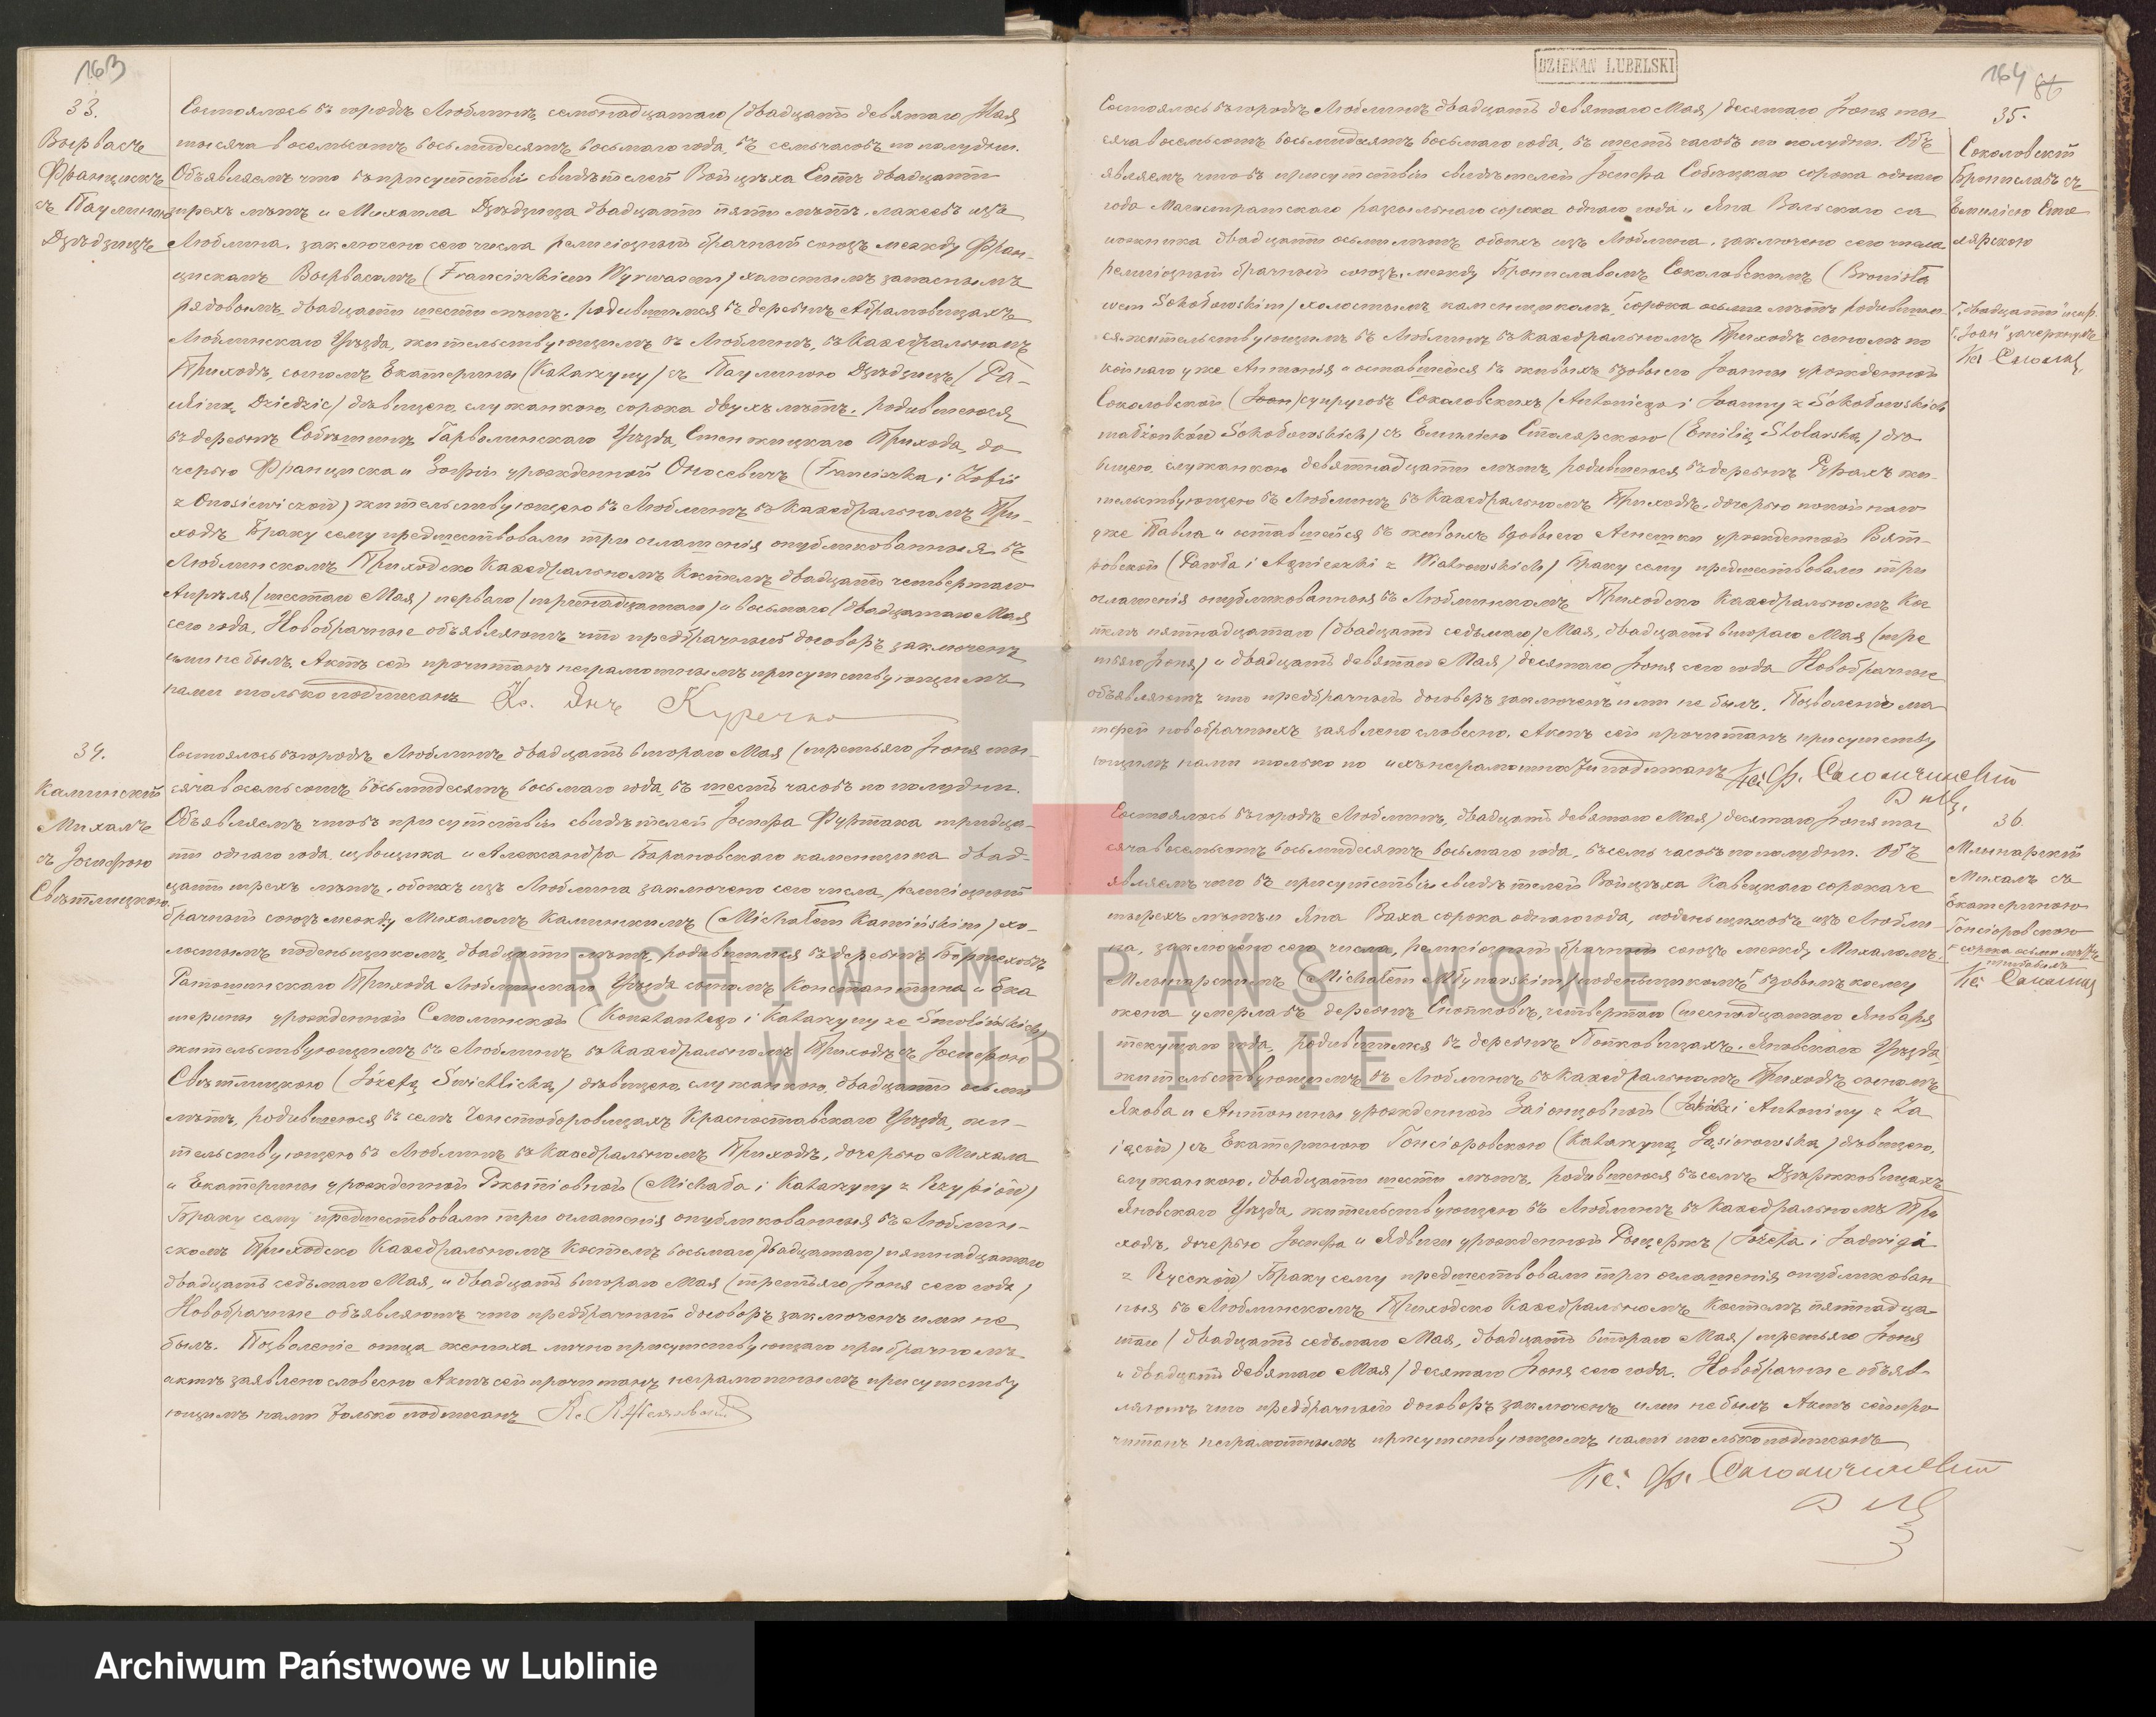 163
33.
Вырвасъ
Францискъ
съ Паулиною
Дзѣдзицъ
Состоялось въ городѣ Люблинѣ, семьнадцатаго (двадцать девятаго) Мая
тысяча восемьсотъ восьмидесятъ восьмаго года, въ семь часовъ по полудни.
Объявляемъ что въ присутствіи свидѣтелей Войцѣха Ента двадцати
трехъ лѣтъ и Михаила Дзѣдзица двадцати пяти лѣтъ, лакеевъ изъ
Люблина, заключено сего числа религіозный брачный союзъ между Фран-
цискомъ Вырвасомъ (Franciszkiem Wyrwasem) холостымъ запаснымъ
рядовымъ, двадцати шести лѣтъ, родившимся въ деревнѣ Абрамовицахъ
Люблинскаго Уѣзда, жительствующимъ въ Люблинѣ, въ Каѳедральномъ
Приходѣ, сыномъ Екатерины (Katarzyny) съ Паулиною Дзѣдзицъ (Pa-
uliną Dziedzic) дѣвицею, служанкою, сорока двухъ лѣтъ, родившеюся
въ деревнѣ Собѣшинѣ Гарволинскаго Уѣзда, Стенжицкаго Прихода, до
черью Франциска и Зофіи урожденной Оносевичъ (Franciszka i Zofii
z Onosiewiczów) жительствующею въ Люблинѣ въ Каѳедральномъ При-
ходѣ. Браку сему предшествовали три оглашенія опубликованныя въ
Люблинскомъ Приходско Каѳедральномъ Костелѣ двадцать четвертаго
Апрѣля (шестаго Мая) перваго (тринадцатаго) и восьмаго (двадцатаго Мая
сего года. Новобрачные объявляютъ что предбрачный договоръ заключенъ
ими не былъ. Актъ сей прочитанъ неграмотнымъ присутствующимъ
нами только подписанъ Кс. Янъ Куречко
34.
Каминскій
Михалъ
съ Іозефою
Свѣтлицкою
Состоялось въ городѣ Люблинѣ двадцать втораго Мая (третьяго Іюня ты-
сяча восемьсотъ восьмидесятъ восьмаго года, въ шесть часовъ по полудни.
Объявляемъ что въ присутствіи свидѣтелей Іосифа Фуртака тридца-
ти одного года извощика и Александра Барановскаго каменщика двад-
цати трехъ лѣтъ, обоихъ изъ Люблина заключено сего числа, религіозный
брачный союзъ между Михаломъ Каминскимъ (Michałem Kamińskim) хо-
лостымъ поденьщикомъ, двадцати лѣтъ, родившимся въ деревнѣ Боржеховѣ
Ратошинскаго Прихода Люблинскаго Уѣзда сыномъ Константина и Ека
терины урожденной Смолинской (Konstantego i Katarzyny ze Smolińskich)
жительствующимъ въ Люблинѣ въ Каѳедральномъ Приходѣ съ Іосифою
Свѣтлицкою (Józefą Swietlicką) дѣвицею, служанкою, двадцати осьми
лѣтъ, родившеюся въ селѣ Ченстоборовицахъ Красноставскаго Уѣзда, жи-
тельствующею въ Люблинѣ въ Каѳедральномъ Приходѣ, дочерью Михала
и Екатерины урожденной (Michała i Katarzyny z)
Браку сему предшествовали три оглашенія опубликованныя въ Люблин-
скомъ Приходско Каѳедральномъ Костелѣ восьмаго (двадцатаго) пятнадцатаго
двадцать седьмаго Мая, и двадцать втораго Мая (третьяго Іюня сего года)
Новобрачные объявляютъ что предбрачный договоръ заключенъ ими не
былъ. Позволеніе отца жениха лично присутствующаго при брачномъ
актѣ заявлено словесно Актъ сей прочитанъ неграмотнымъ присутству
ющимъ нами только подписанъ
DZIEKAN LUBELSKI
164 86
Состоялось въ городѣ Люблинѣ двадцать девятаго Мая) десятаго Іюня ты-
сяча восемьсотъ восьмидесятъ восьмаго года, въ шесть часовъ по полудни. Объ
являемъ что въ присутствіи свидѣтелей Іосифа Собоцкаго сорока одного
года Магистратскаго сорока одного года и Яна Вальскаго са
пожника двадцати осьми лѣтъ обоихъ изъ Люблина, заключено сего числа
религіозный брачный союзъ, между Брониславомъ Соколовскимъ (Bronisła
wem Sokołowskim) холостымъ каменщикомъ, сорока осьми лѣтъ родившим
ся жительствующимъ въ Люблинѣ въ Каѳедральномъ Приходѣ сыномъ по
койнаго уже Антонія и оставшейся въ живыхъ вдовы его Іоанны урожденной
Соколовской (Іоан) супруговъ Соколовскихъ (Antoniego i Joanny z Sokołowskich
małżonków Sokołowskich) съ Емилею Столярскою (Emilią Stolarską) дѣ
вицею, служанкою девятнадцати лѣтъ, родившеюся въ деревнѣ Рурахъ жи-
тельствующею въ Люблинѣ въ Каѳедральномъ Приходѣ, дочерью покойнаго
уже Павла и оставшейся въ живыхъ вдовы его Агнешки урожденной Вят-
ровской (Pawła i Agnieszki z Wiatrowskich) Браку сему предшествовали три
оглашенія опубликованныя въ Люблинскомъ Приходско Каѳедральномъ Кос
телѣ пятнадцатаго (двадцать седьмаго) Мая, двадцать втораго Мая (тре
тьяго Іюня) и двадцать девятаго Мая) десятаго Іюня сего года Новобрачные
объявляютъ что предбрачный договоръ заключенъ ими не былъ. Позволеніе ма
терей новобрачныхъ заявлено словесно. Актъ сей прочитанъ присутству
ющимъ нами только по ихъ неграмотности подписанъ
35.
Соколовскій
Брониславъ съ
Емилею Сто
лярскою
"двадцати" испр.
"Іоан" зачеркнутъ
Кс
Состоялось въ городѣ Люблинѣ, двадцать девятаго Мая) десятаго Іюня ты
сяча восемьсотъ восьмидесятъ восьмаго года, въ семь часовъ по полудни. Объ
являемъ что въ присутствіи свидѣтелей Войцѣха Кавецкаго сорока че
тырехъ лѣтъ и Яна Ваха сорока одного года, поденьщиковъ изъ Любли
на, заключено сего числа, религіозный брачный союзъ между Михаломъ
Млынарскимъ (Michałem Młynarskim) поденьщикомъ вдовымъ коему
жена умерла въ деревнѣ четвертаго (шестнадцатаго Января
текущаго года, родившимся въ деревнѣ Потковицахъ, Яновскаго Уѣзда,
жительствующимъ въ Люблинѣ въ Каѳедральномъ Приходѣ сыномъ
Якова и Антонины урожденной Заіонцовной (Jakóba i Antoniny z Za
jęców) съ Екатериною Гонсіоровскою (Katarzyną Gąsiorowską) дѣвицею,
служанкою, двадцати шести лѣтъ, родившеюся въ селѣ Дзѣржковицахъ
Яновскаго Уѣзда, жительствующею въ Люблинѣ въ Каѳедральномъ При
ходѣ, дочерью Іосифа и Ядвиги урожденной (Józefa i Jadwigi
z) Браку сему предшествовали три оглашенія опубликован
ныя въ Люблинскомъ Приходско Каѳедральномъ Костелѣ пятнадца-
таго (двадцать седьмаго Мая, двадцать втораго Мая) третьяго Іюня
и двадцать девятаго Мая) десятаго Іюня сего года. Новобрачные объяв-
ляютъ что предбрачный договоръ заключенъ ими не былъ Актъ сей про
читанъ неграмотнымъ присутствующимъ нами только подписанъ
36.
Млынарскій
Михалъ съ
Екатериною
Гонсіоровскою
сорока осьми лѣтъ
Кс.
Кс. Ф.
ARCHIWUM PAŃSTWOWE
W LUBLINIE
Archiwum Państwowe w Lublinie